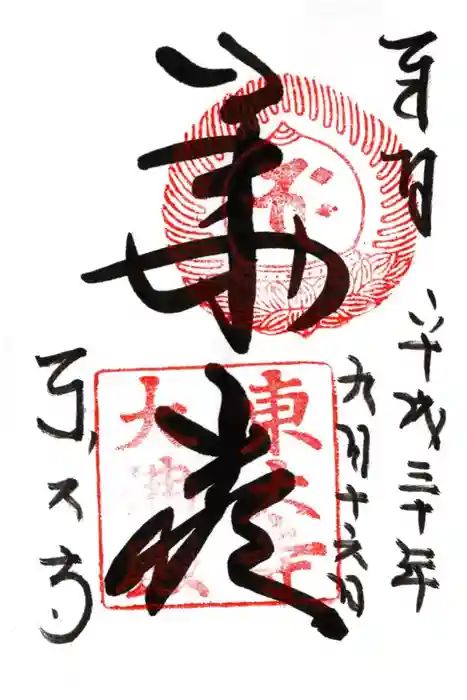 奉拝
平成三十年
九月十六日
華厳
東大寺
大佛殿
東大寺